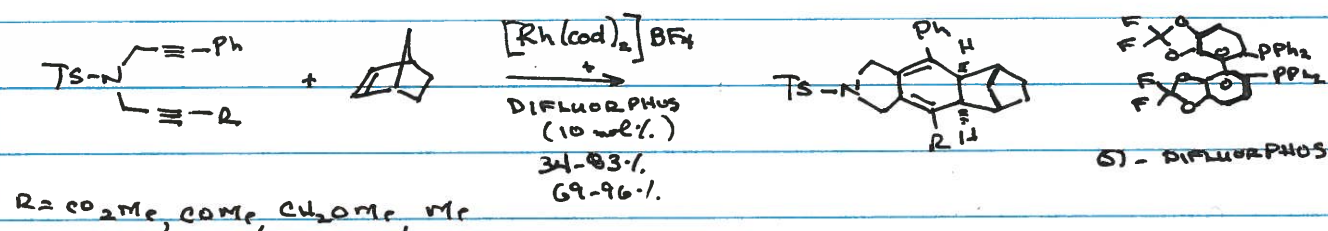 [Rh(cod)₂]BF₄
+
DIFLUORPHOS
(10 mol%)
34-83%
69-96%
Ts-N
≡-Ph
≡-R
+
Ts-N
Ph
H
H
R
F
F
O
O
PPh₂
PPh₂
F
F
O
O
(S) - DIFLUORPHOS
R = CO₂Me, COMe, CH₂OMe, Me